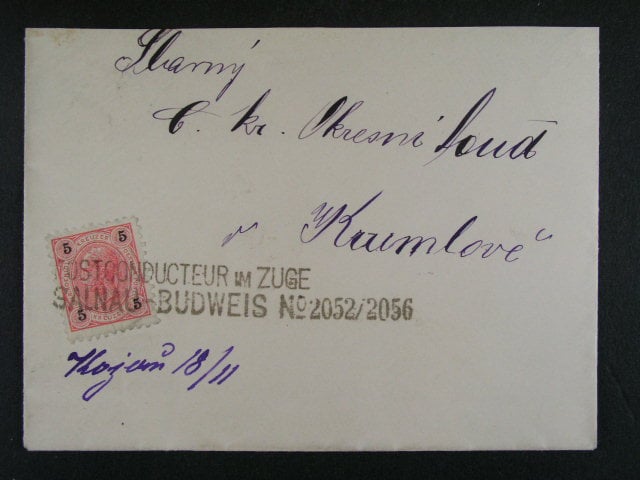 Slavný
C. kr. Okresní soud
v Krumlově
5 KREUZER 5
POSTCONDUCTEUR IM ZUGE
SALNAU-BUDWEIS No 2052/2056
5 5
Kojau 18/11